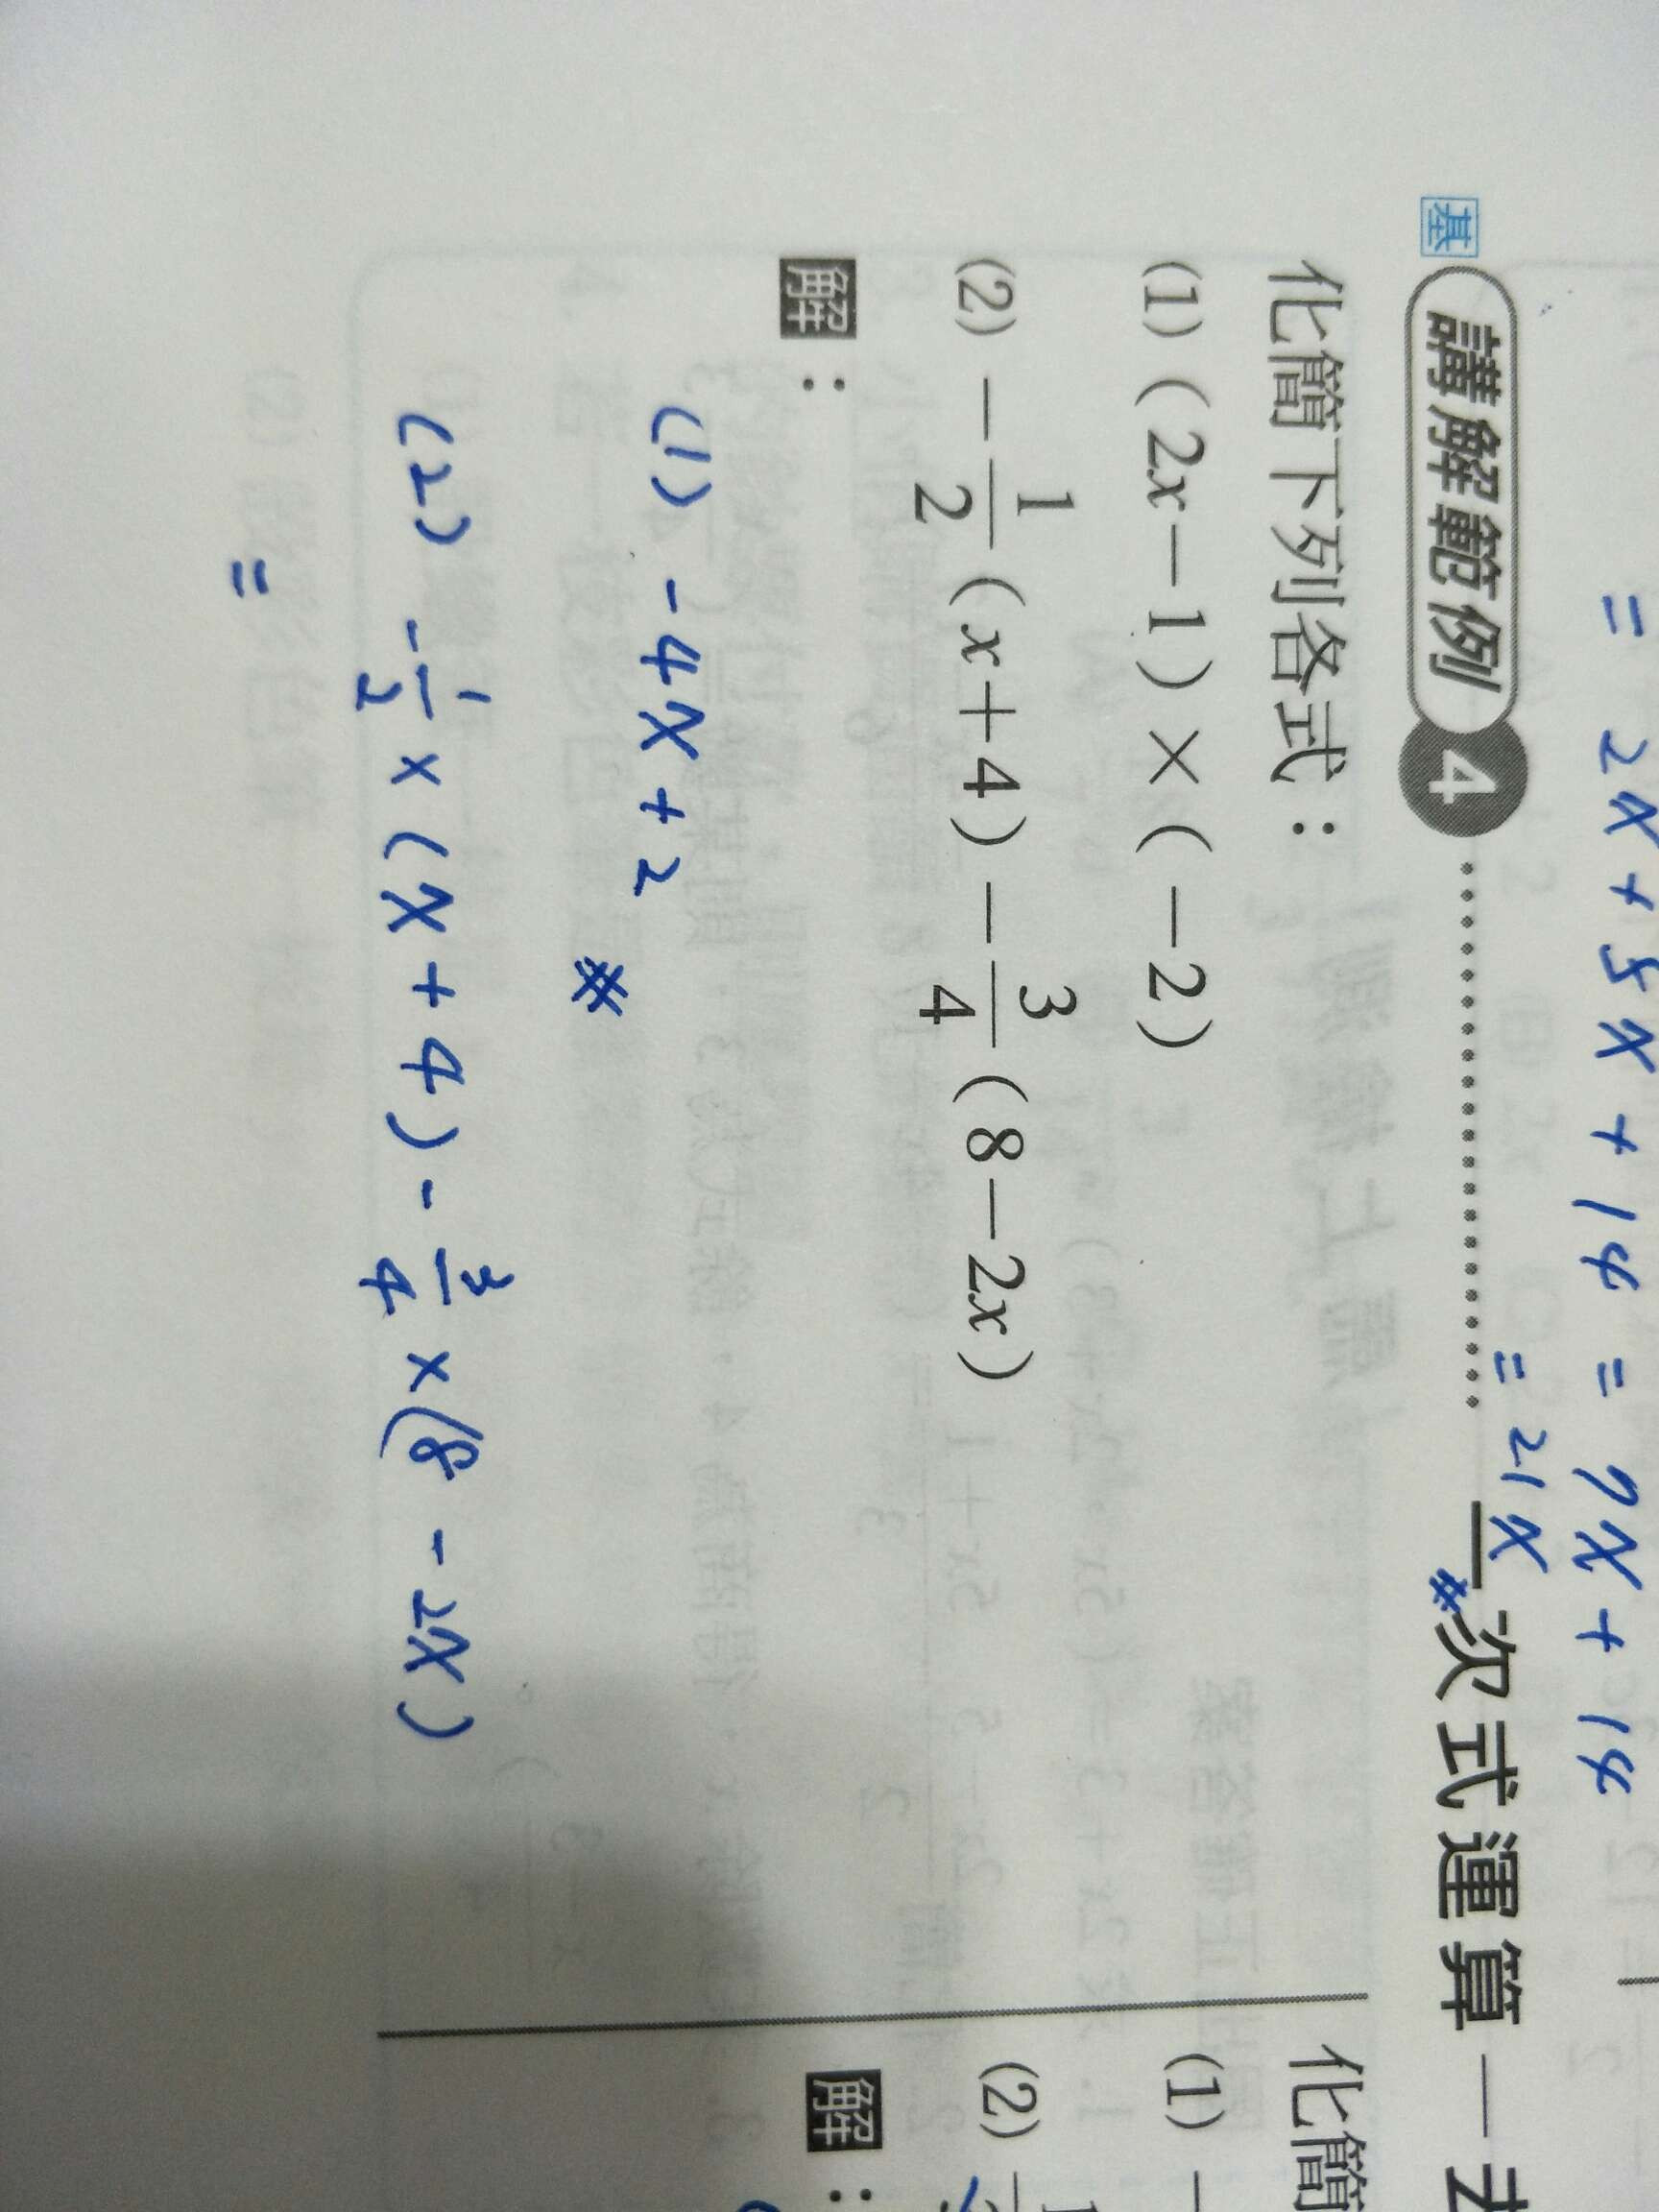 = 2x + 5x + 14 = 7x + 14
= 21x #
基 講解範例 4 一次式運算—去
化簡下列各式：
(1) (2x-1)×(-2)
(2) -1/2(x+4)-3/4(8-2x)
解：
(1) -4x+2 #
(2) -1/2×(x+4)-3/4×(8-2x)
=
化簡
(1) -
(2)
解：